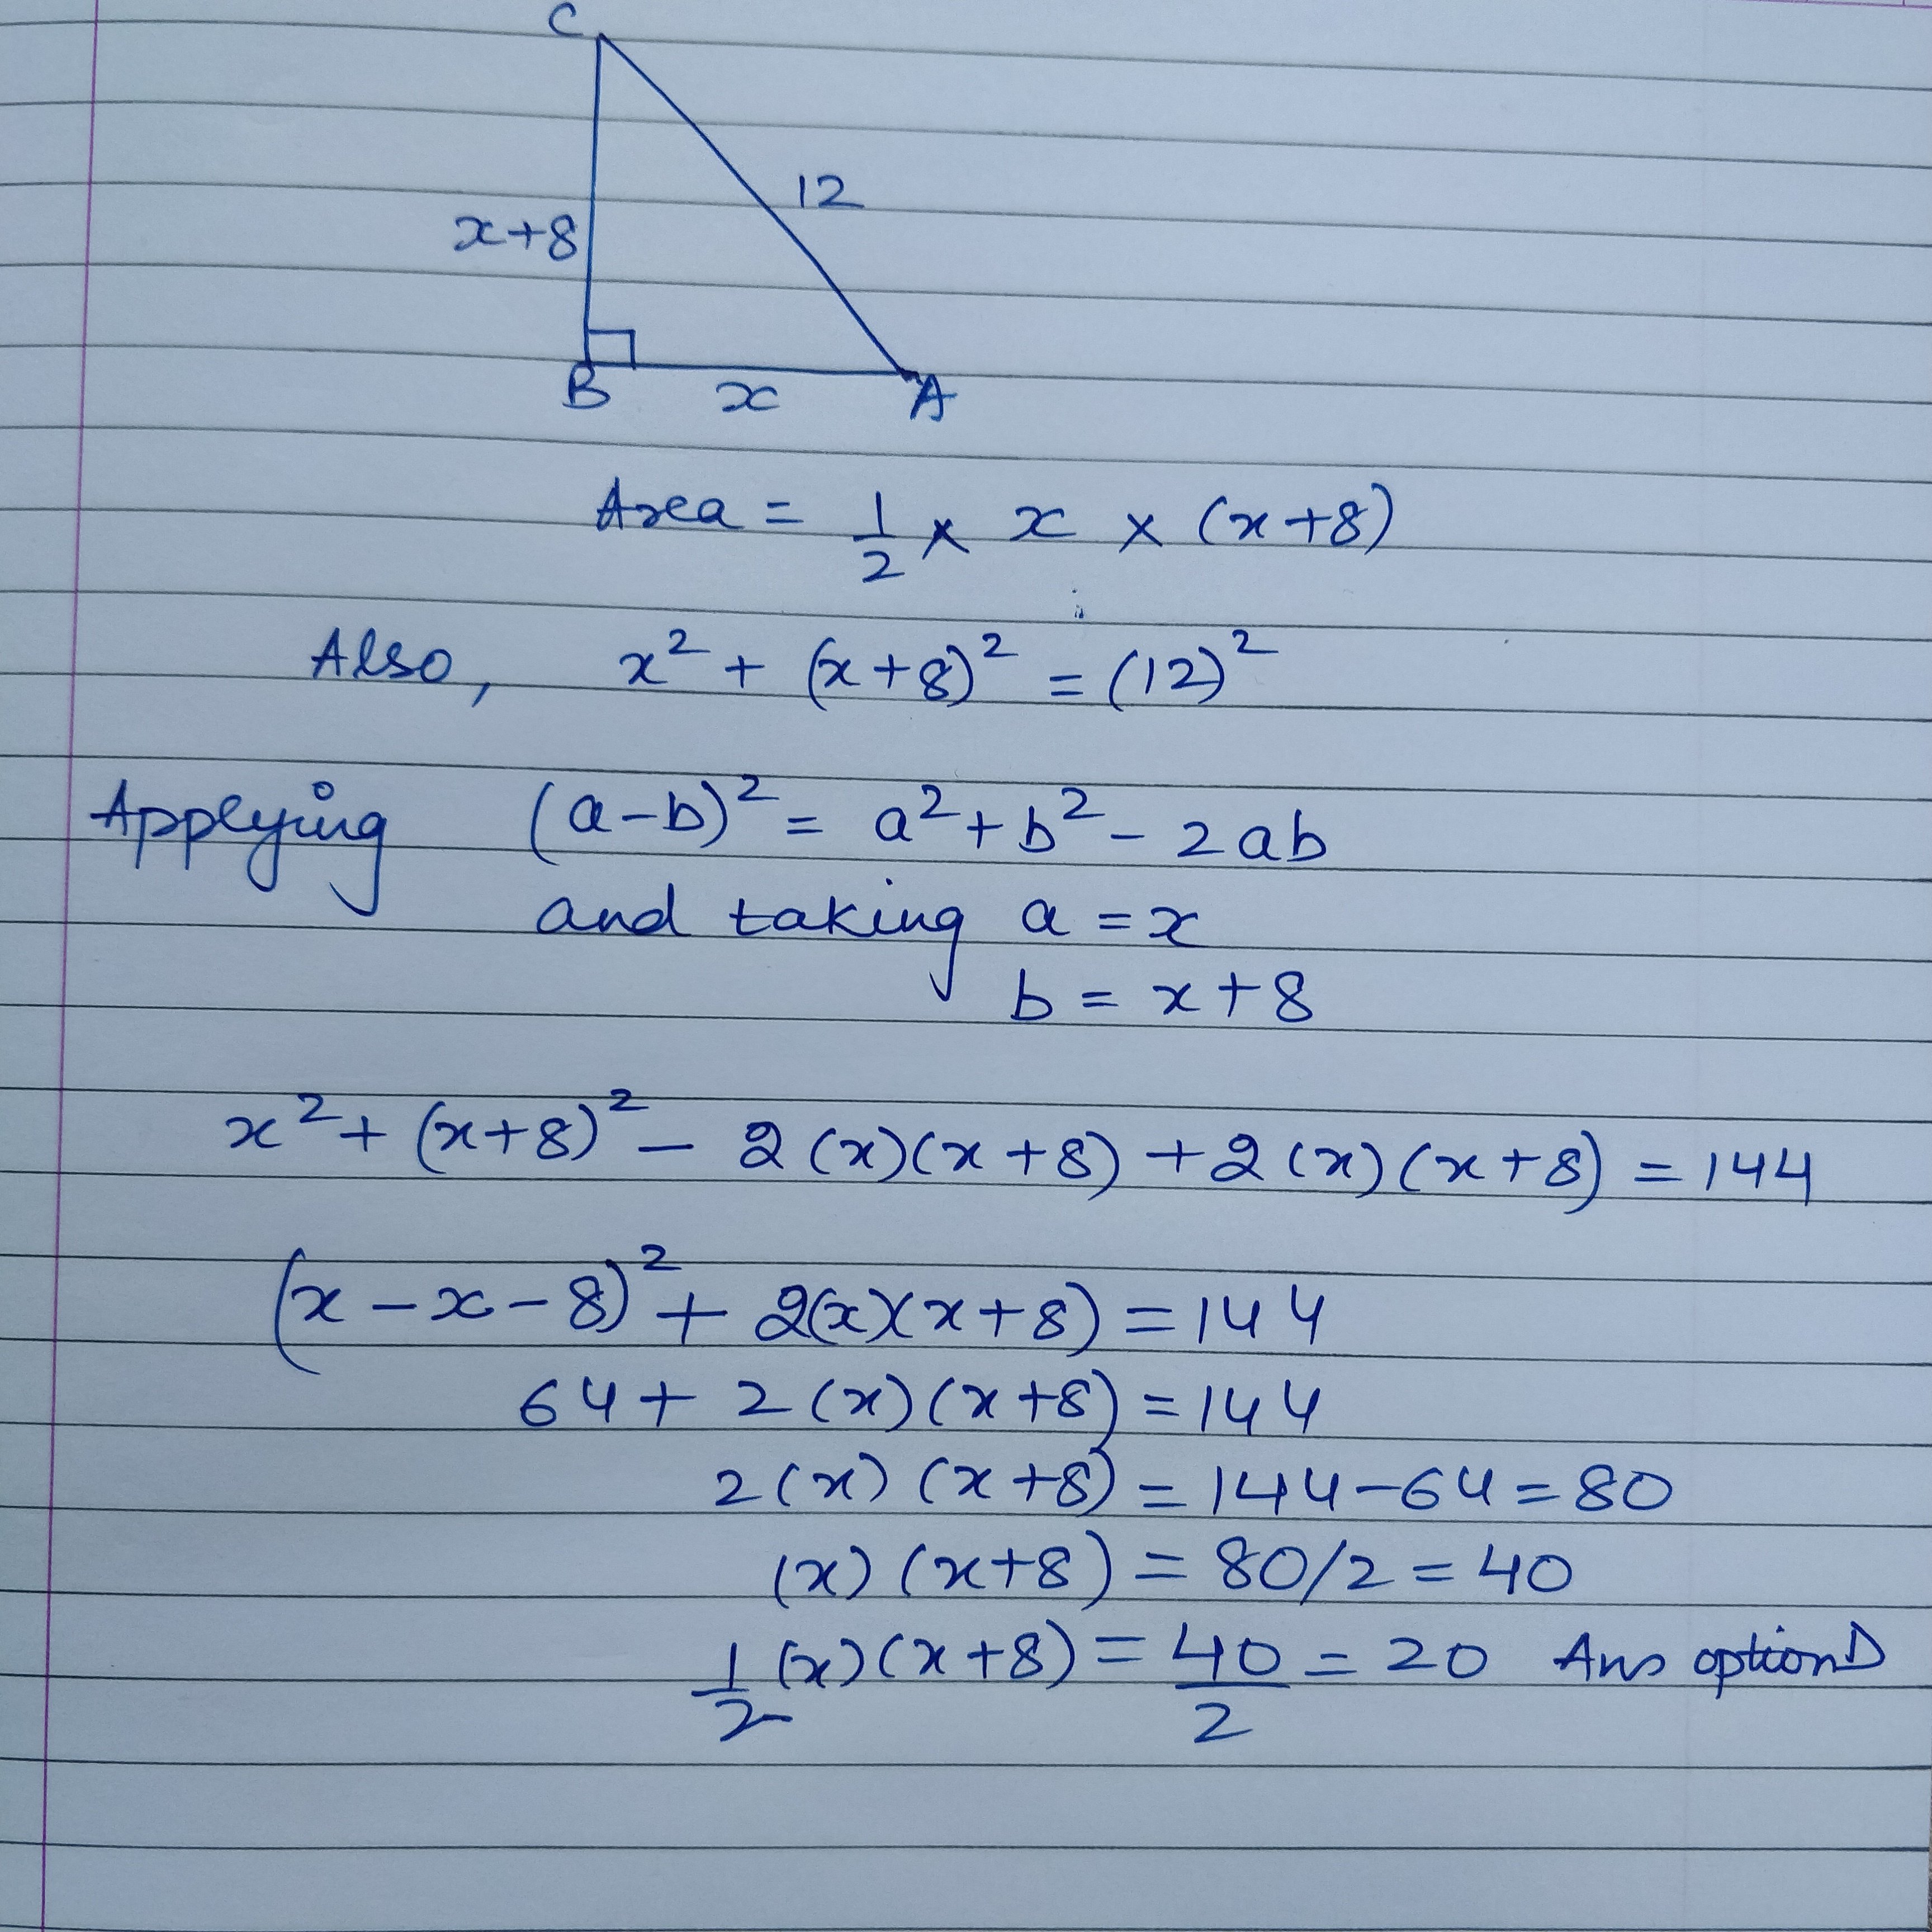 C
12
x+8
B x A
Area = 1/2 × x × (x+8)
Also, x² + (x+8)² = (12)²
Applying (a-b)² = a²+b²- 2ab
and taking a = x
b = x+8
x²+ (x+8)² - 2(x)(x+8) +2(x)(x+8) = 144
(x-x-8)² + 2(x)(x+8) = 144
64+ 2(x)(x+8) = 144
2(x)(x+8) = 144-64 = 80
(x)(x+8) = 80/2 = 40
1/2 (x)(x+8) = 40/2 = 20 Ans option D